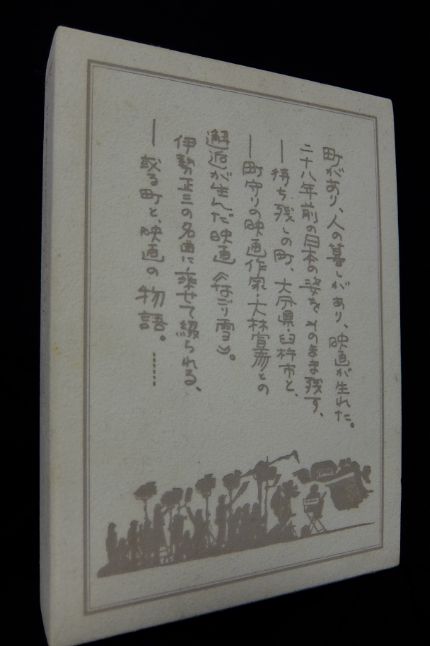 町があり、人の暮しがあり、映画が生れた。
二十八年前の日本の姿をそのまま残す、
―待ち残しの町、大分県・臼杵市と、
―町守りの映画作家・大林宣彦との
邂逅が生んだ映画《なごり雪》。
伊勢正三の名曲に乗せて綴られる、
―或る町と、映画の物語。………